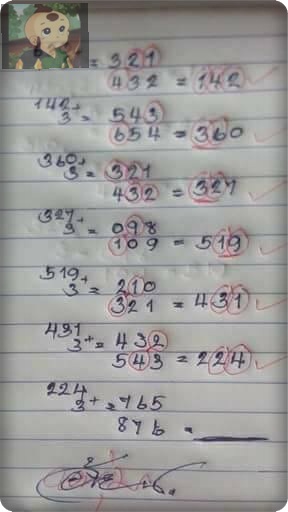 = 321
432 = 142
142+
3 = 543
654 = 360
360+
3 = 321
432 = 327
327+
3 = 098
109 = 519
519+
3 = 210
321 = 431
431
3+ = 432
543 = 224
224
3+ = 765
876 =